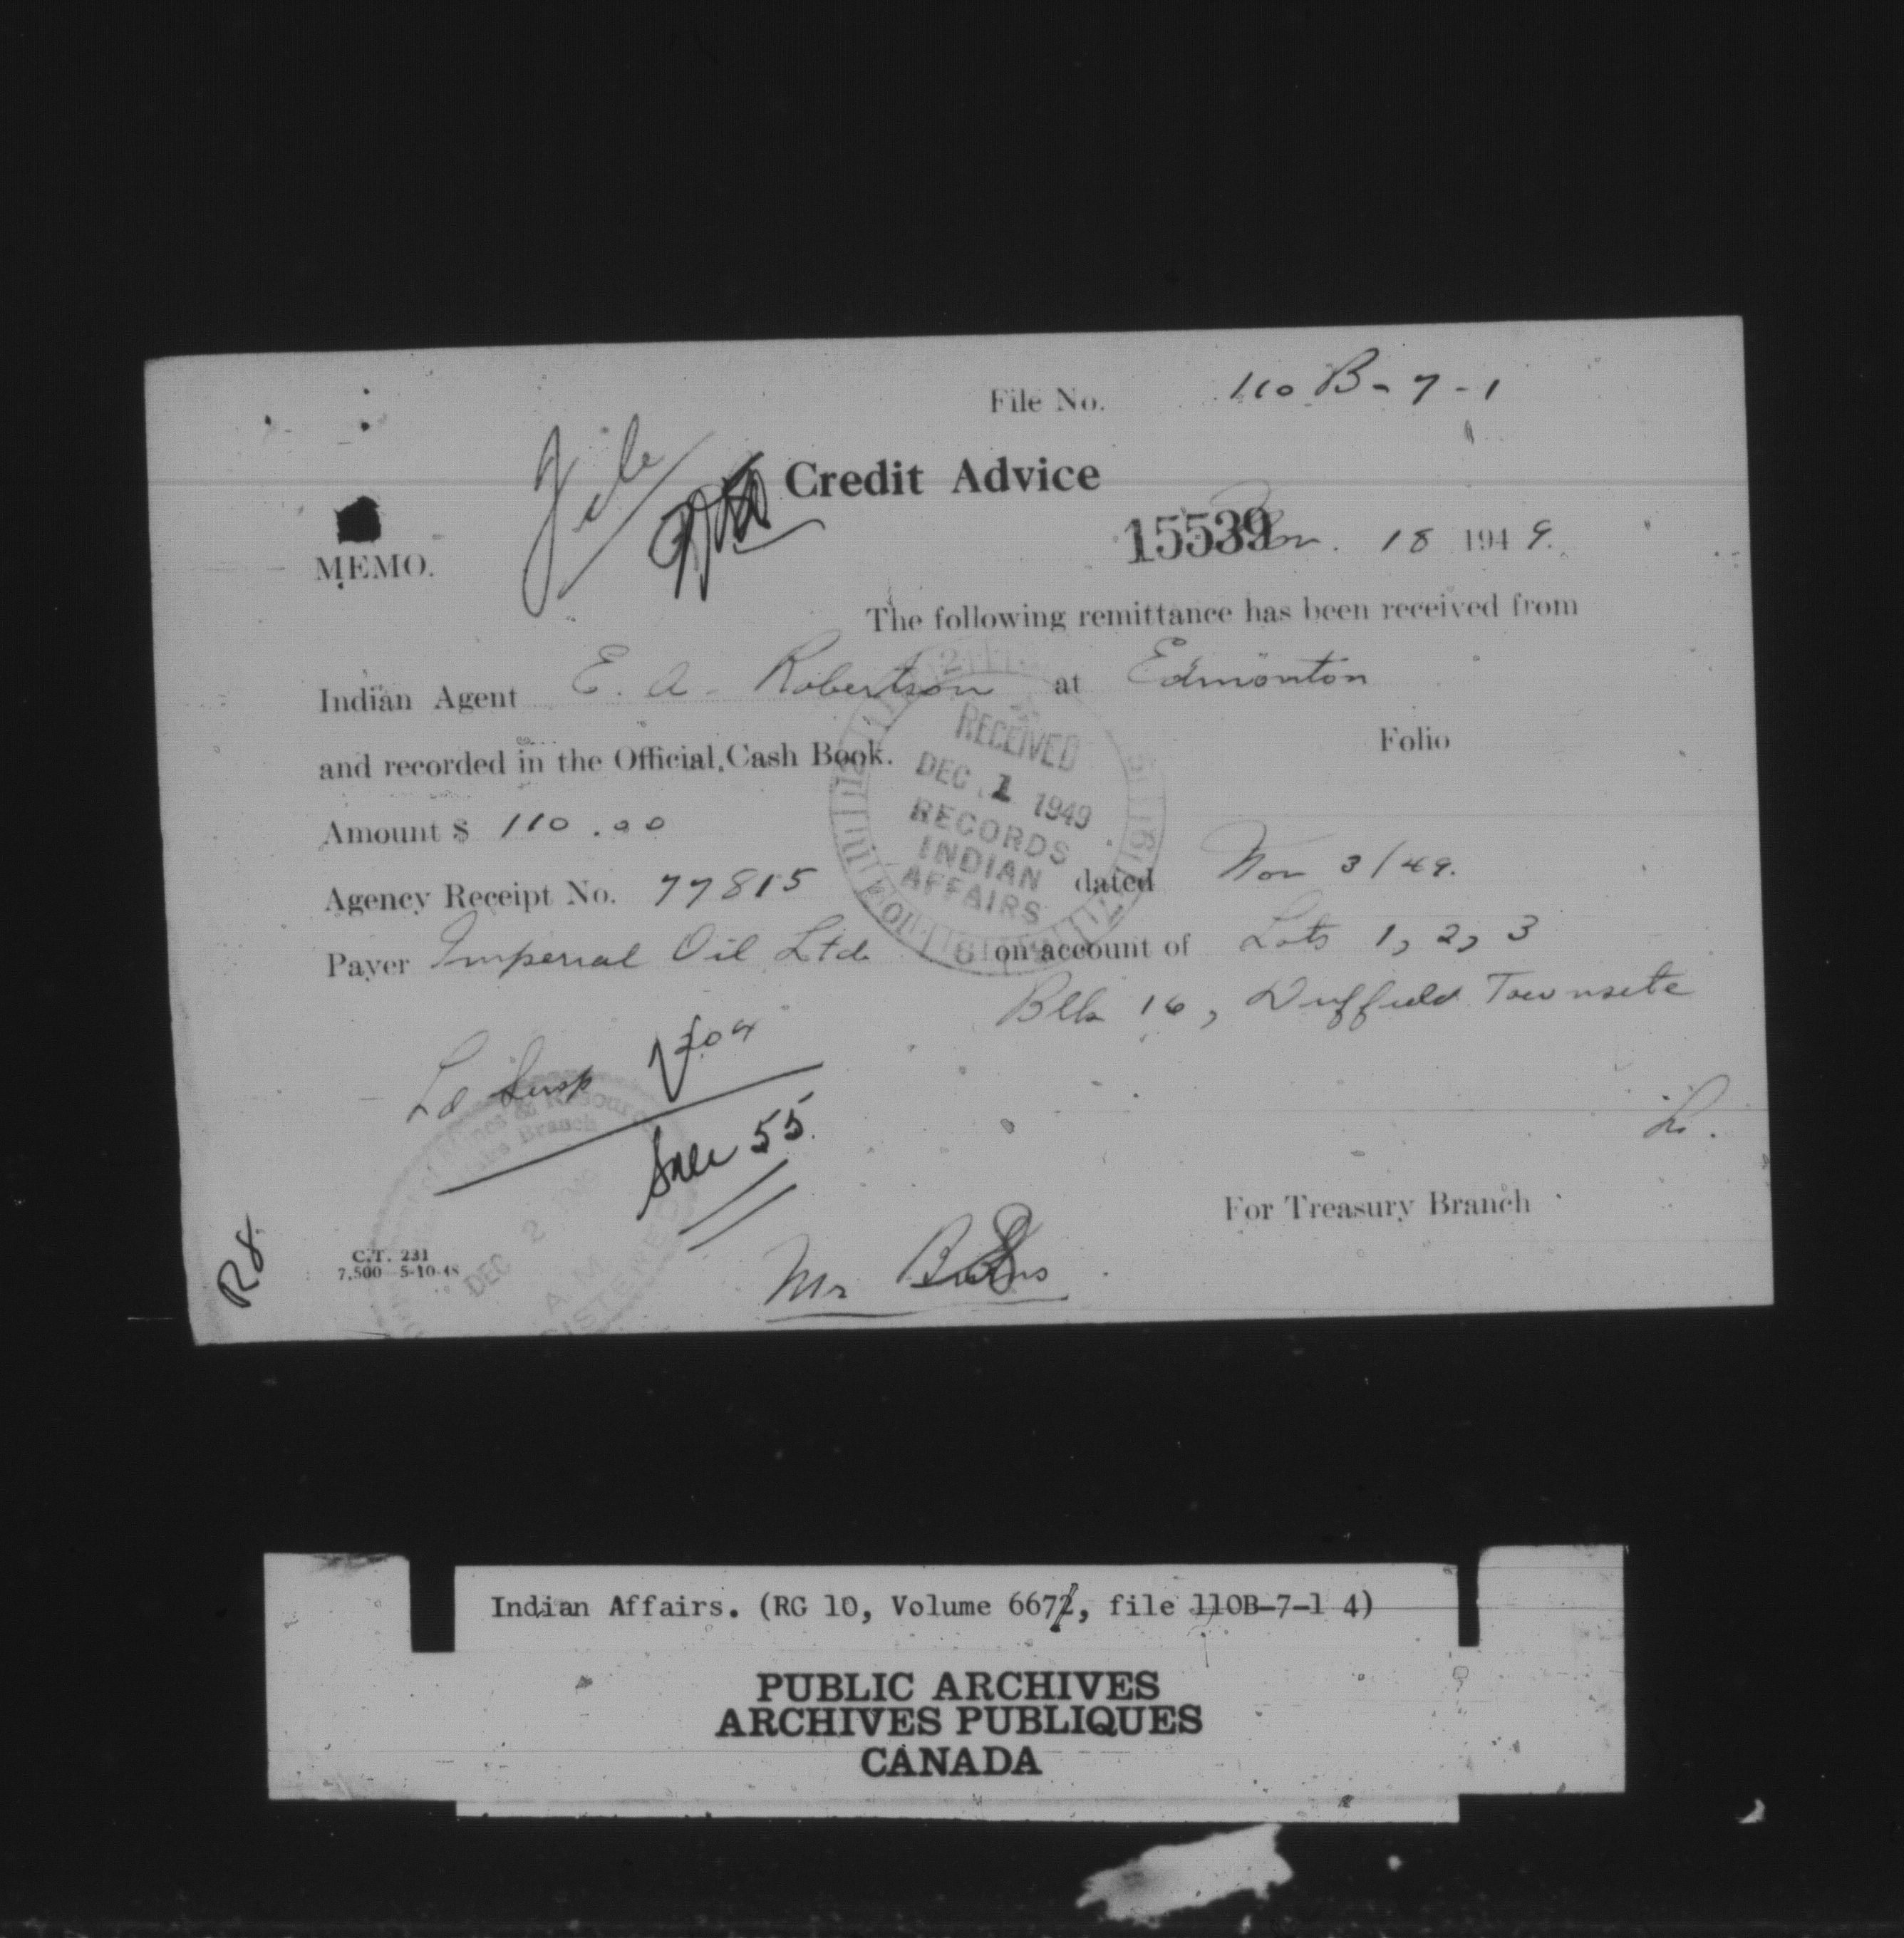 File No. 110 B-7-1
File
Credit Advice
15539
Nov. 18 1949.
MEMO.
The following remittance has been received from
Indian Agent E. A. Robertson at Edmonton
and recorded in the Official Cash Book.
Folio
Amount $ 110.00
RECEIVED
DEC 1 1949
RECORDS
INDIAN
AFFAIRS
Agency Receipt No. 77815 dated Nov 3/49.
Payer Imperial Oil Ltd. on account of Lots 1, 2, 3
Blk 16, Duffield Townsite
Ld Susp 204
Sale 55.
For Treasury Branch
Mines & Resources
Branch
DEC 2
A.M.
C.T. 231
7,500 5-10-48
R8.
Mr Burns
Indian Affairs. (RG 10, Volume 6672, file 110B-7-1 4)
PUBLIC ARCHIVES
ARCHIVES PUBLIQUES
CANADA